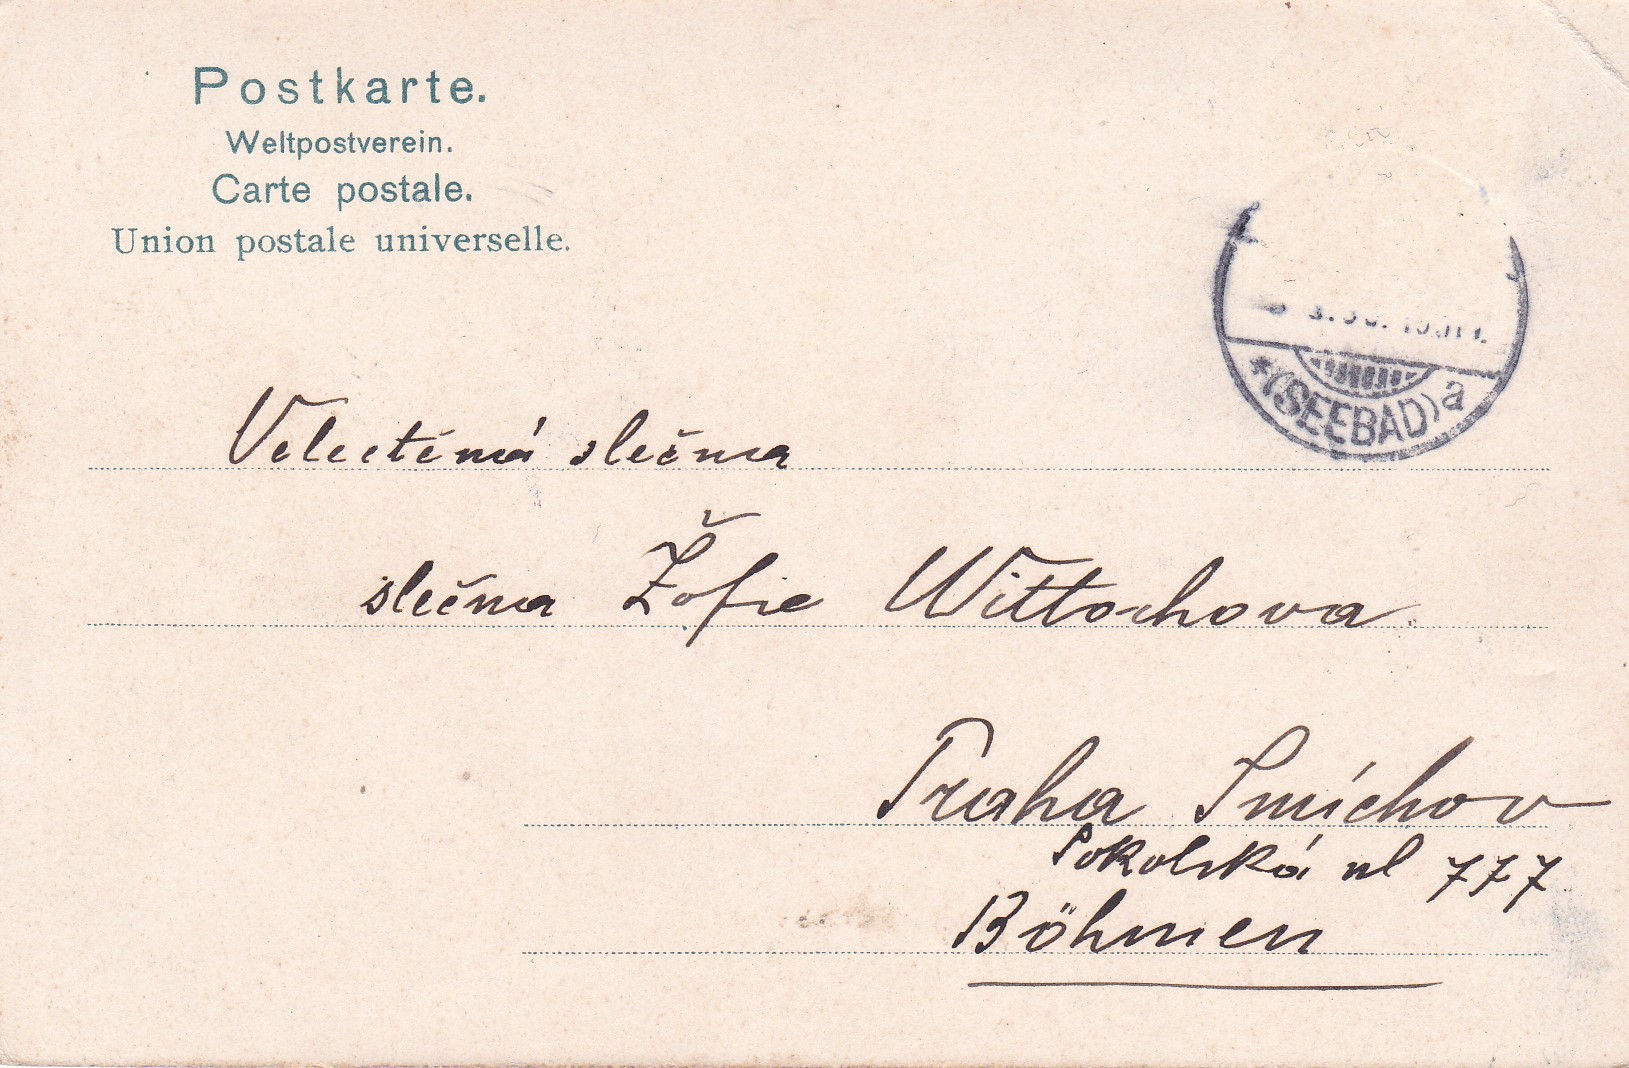 Postkarte.
Weltpostverein.
Carte postale.
Union postale universelle.
*(SEEBAD) a
Velectěná slečna
slečna Žofie Wittochova
Praha Smíchov
Sokolská ul 777
Böhmen